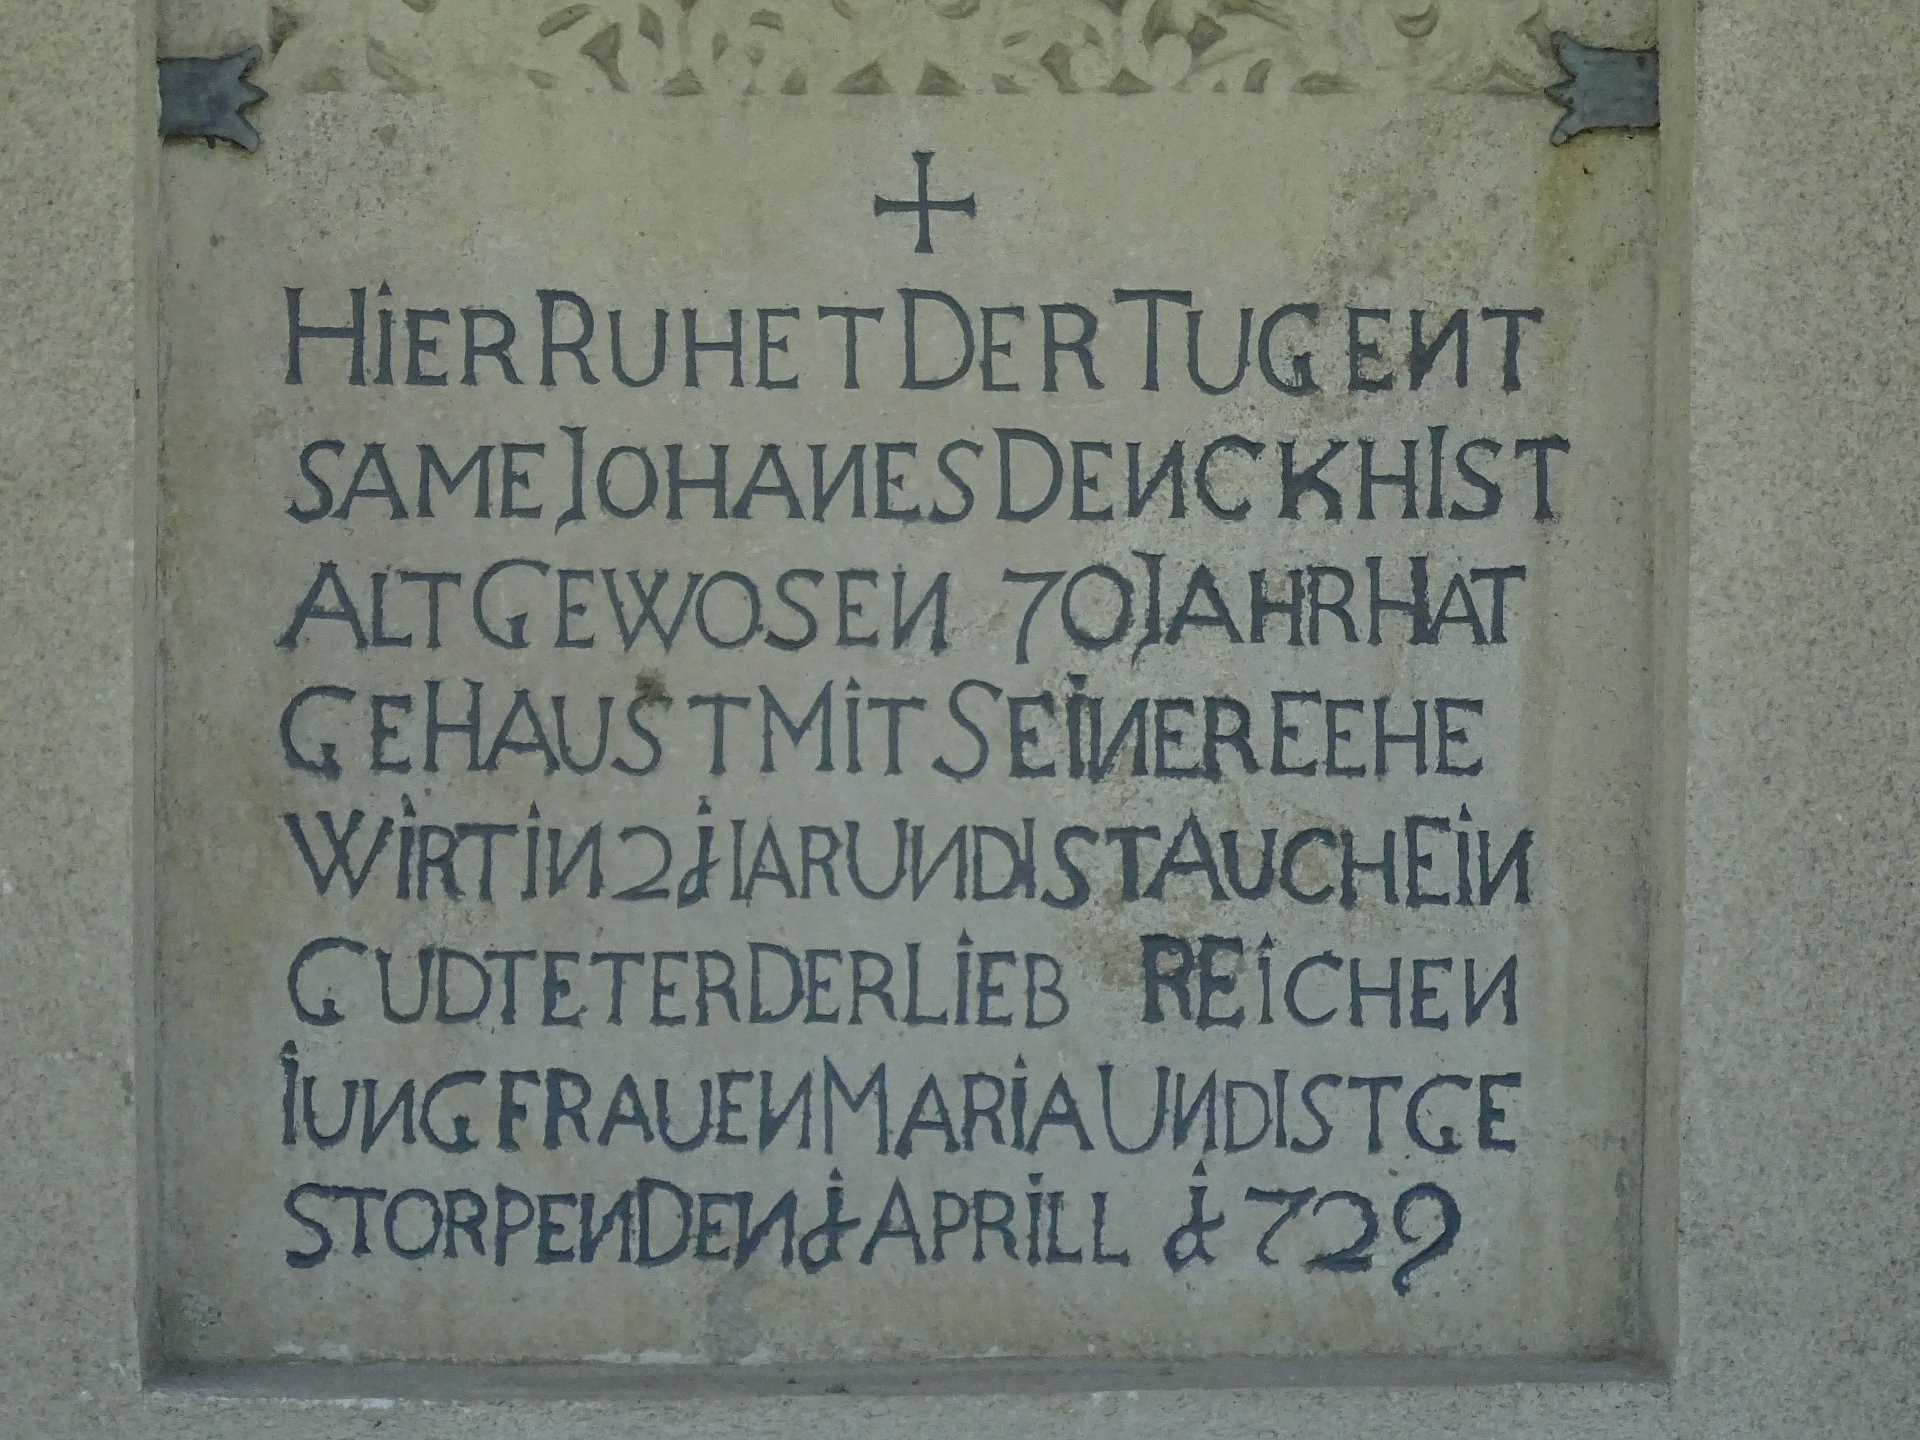 HiER RUHET DER TUGENT
SAME JOHANES DENCKH IST
ALT GEWOSEN 70 JAHR HAT
GEHAUST MiT SEiNER EEHE
WiRTiN 21 IAR UND IST AUCH EiN
GUDTETER DER LiEB REiCHEN
IUNGFRAUEN MARiA UND IST GE
STORPEN DEN 1 APRiLL 1729